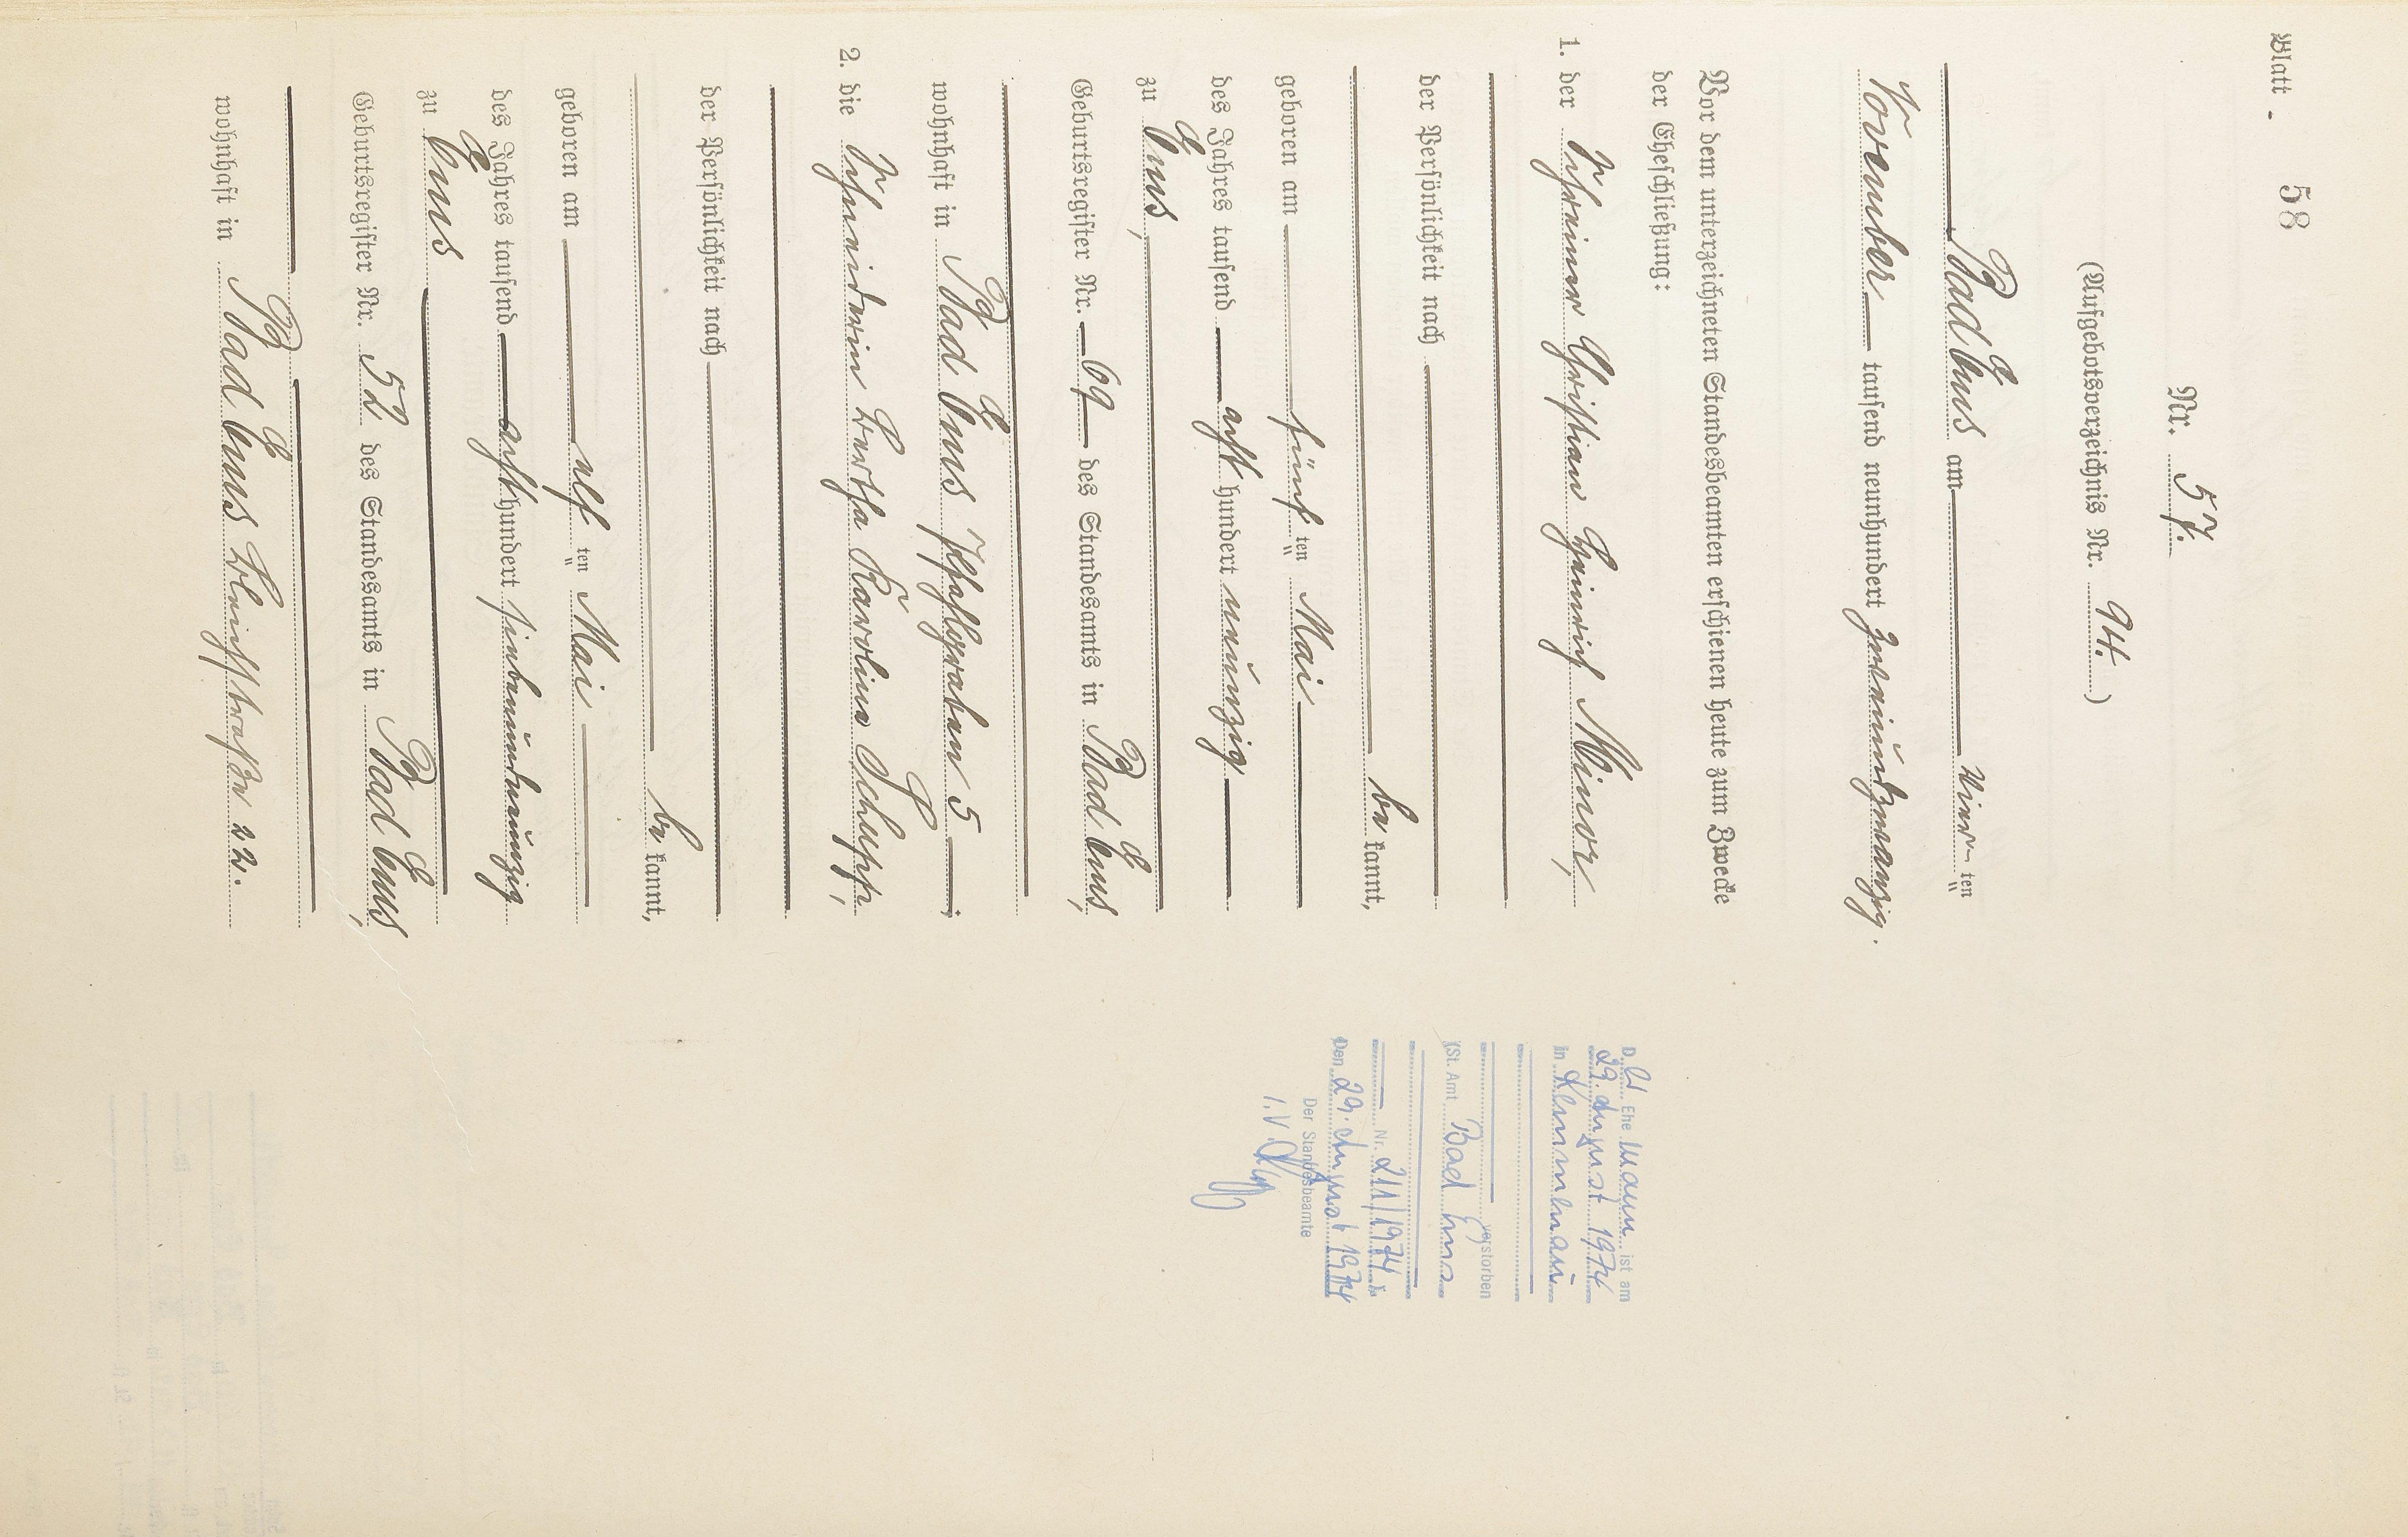 Blatt. 58
Nr. 57.
(Aufgebotsverzeichnis Nr. 94.)
Bad Ems am vier ten
November tausend neunhundert zweiundzwanzig.
Vor dem unterzeichneten Standesbeamten erschienen heute zum Zwecke
der Eheschließung:
1. der Schreiner Christian Heinrich Minor,
der Persönlichkeit nach
be kannt,
geboren am fünf ten Mai
des Jahres tausend acht hundert neunzig
zu Ems,
Geburtsregister Nr. 69 des Standesamts in Bad Ems,
wohnhaft in Bad Ems Pfahlgraben 5;
2. die Schneiderin Bertha Karoline Schupp,
der Persönlichkeit nach
be kannt,
geboren am elf ten Mai
des Jahres tausend acht hundert siebenundneunzig
zu Ems
Geburtsregister Nr. 52 des Standesamts in Bad Ems,
wohnhaft in Bad Ems Bleichstraße 22.
D. er Ehe mann ist am
29. August 1974
in
verstorben
(St. Amt Bad Ems
Nr. 211/1974)
Den 29. August 1974
Der Standesbeamte
I.V.